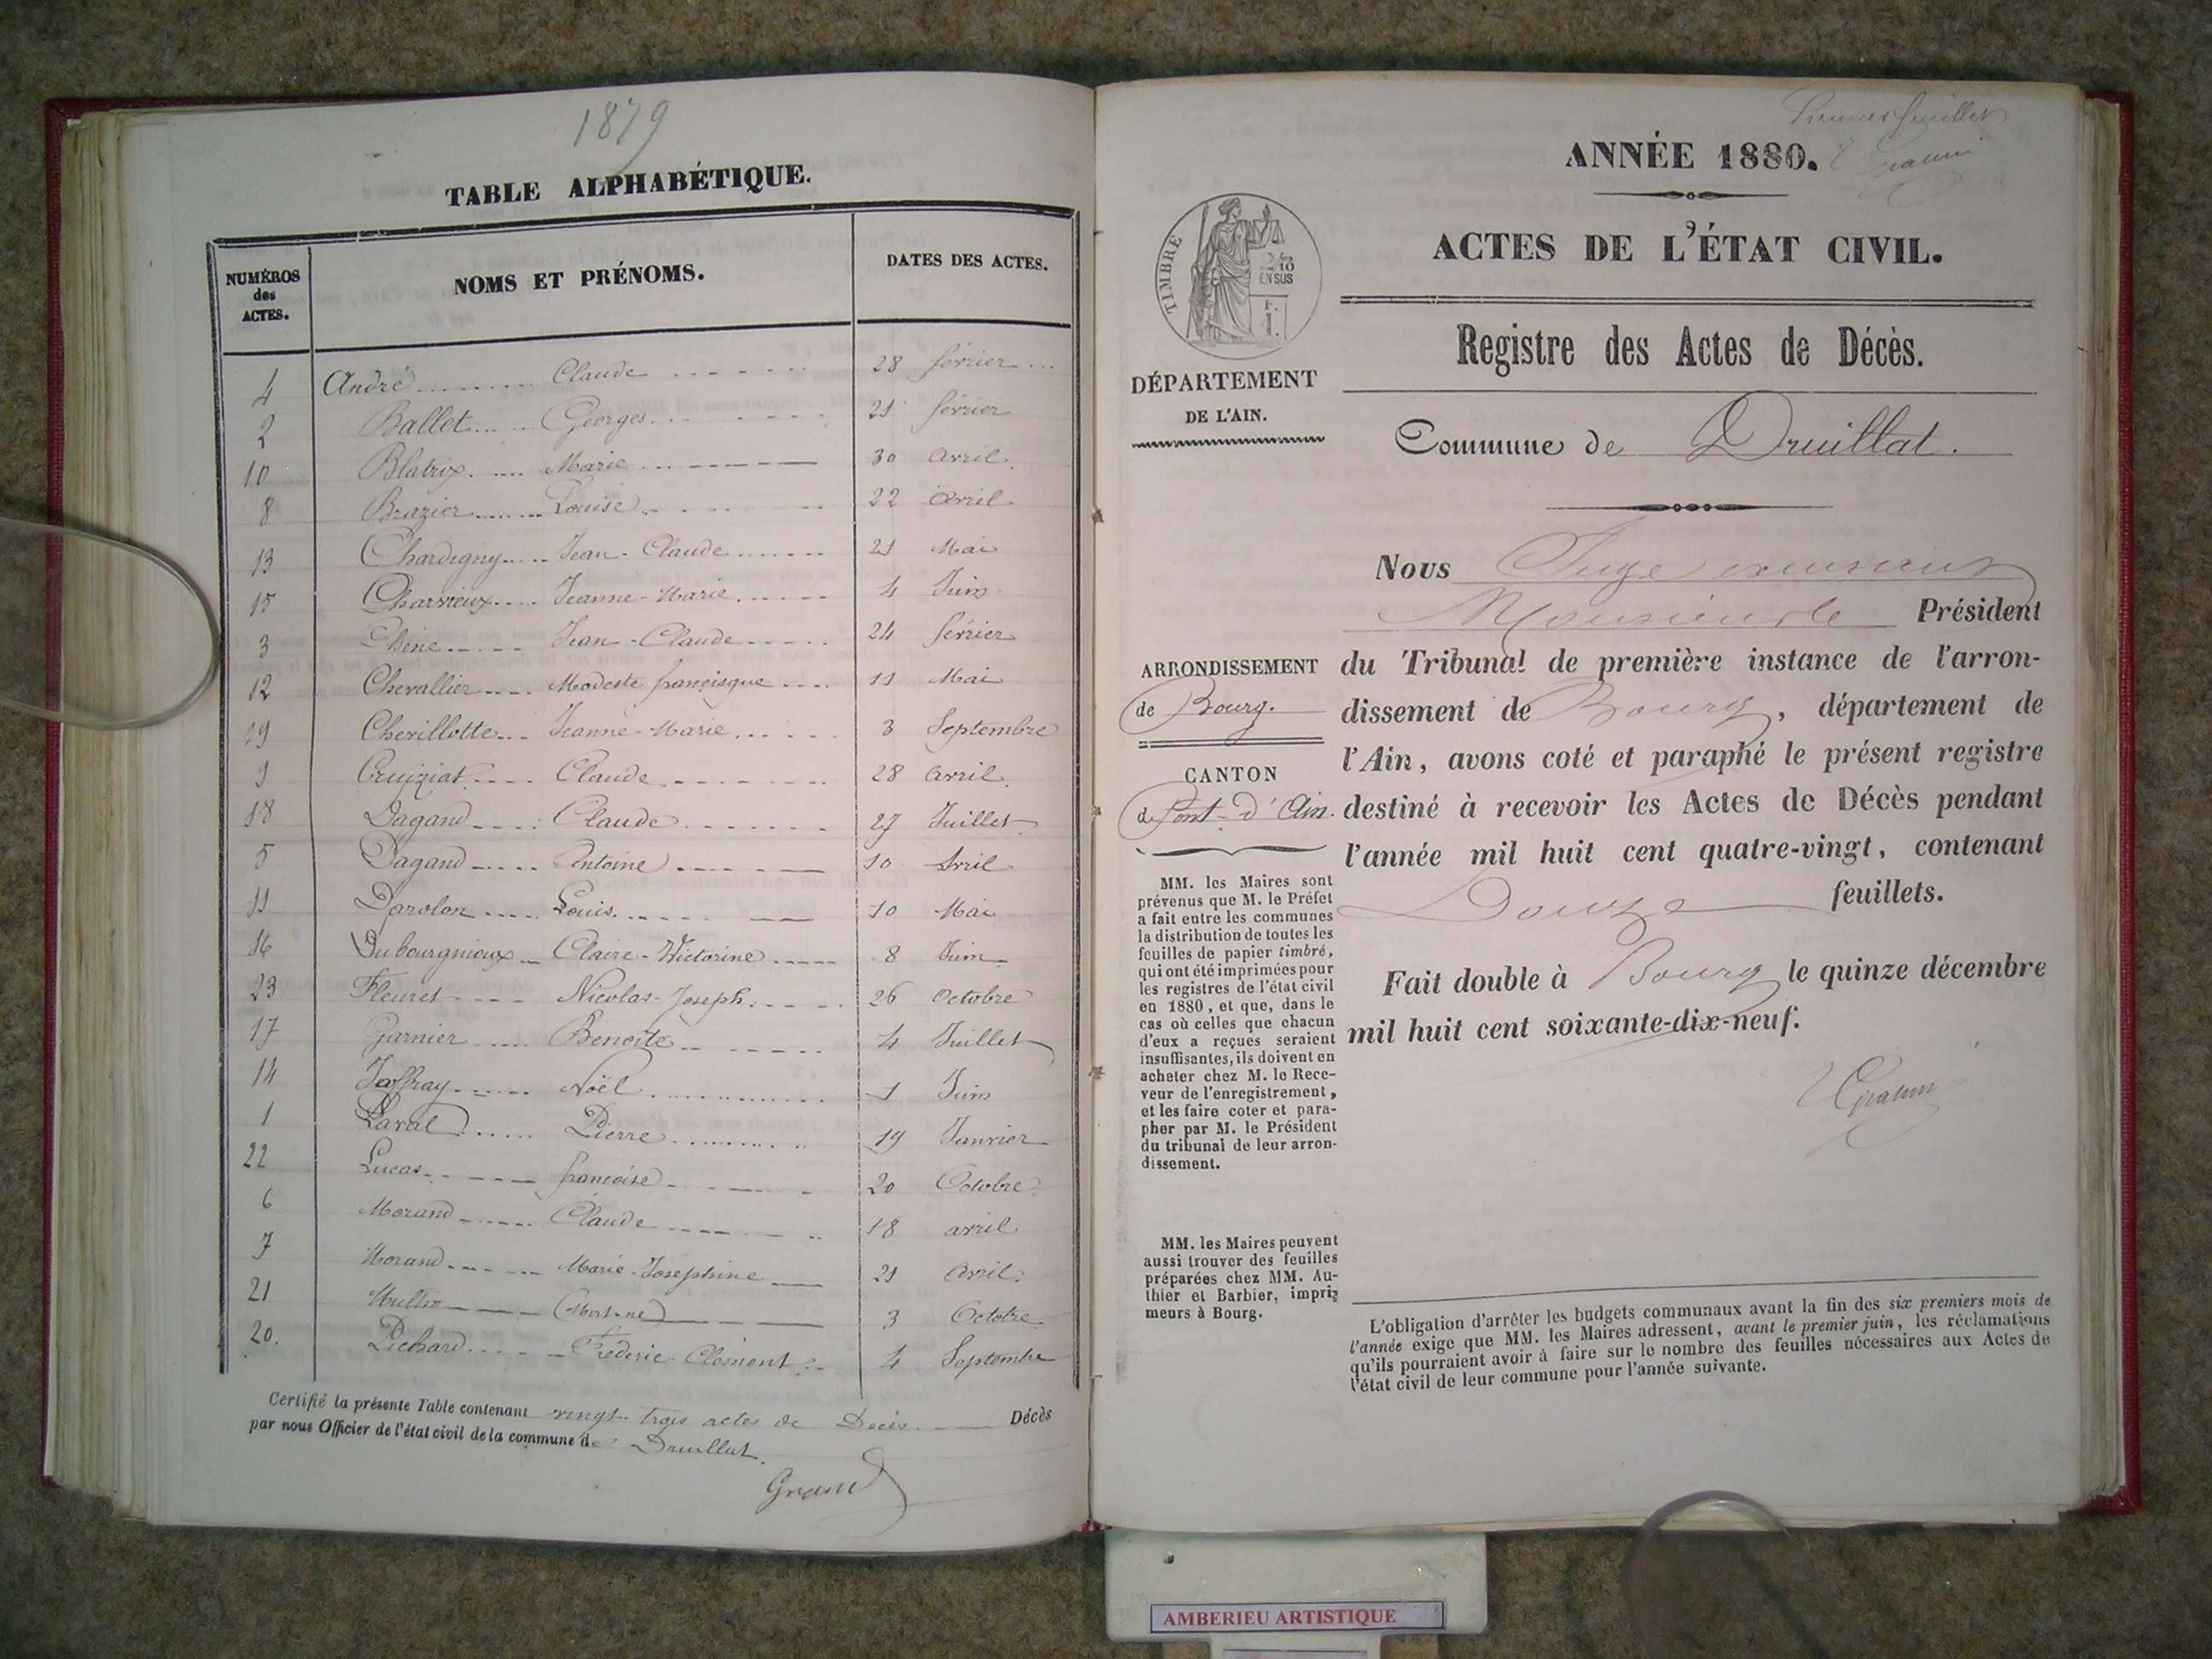 1879
TABLE ALPHABÉTIQUE.
NUMÉROS des ACTES. NOMS ET PRÉNOMS. DATES DES ACTES.
4 André Claude 28 février
2 Ballet Georges 21 février
10 Blatrix Marie 30 avril
8 Brazier Louise 22 avril
13 Chardigny Jean-Claude 21 Mai
15 Charvieux Jeanne-Marie 4 Juin
3 Chêne Jean-Claude 24 février
12 Chevallier Modeste françisque 11 Mai
19 Chevillotte Jeanne-Marie 3 Septembre
9 Cruiziat Claude 28 avril
18 Dagand Claude 27 Juillet
5 Dagand Antoine 10 Avril
11 Darolon Louis 10 Mai
16 Dubourgnioux Claire-Victorine 8 Juin
23 Fleuret Nicolas-Joseph 26 Octobre
17 Garnier Benoite 4 Juillet
14 Joffray Noël 1 Juin
1 Laval Pierre 19 Janvier
22 Lucas françoise 20 Octobre
6 Morand Claude 18 avril
7 Morand Marie-Joséphine 21 Avril
21 Mullin (Mort-né) 3 Octobre
20. Pichard Fréderic Clément 4 Septembre
Certifié la présente Table contenant vingt-trois actes de Décès Décès
par nous Officier de l'état civil de la commune de Druillat.
Premier feuillet
ANNÉE 1880.
ACTES DE L'ÉTAT CIVIL.
TIMBRE
2/10
EN SUS
Registre des Actes de Décès.
DÉPARTEMENT
DE L'AIN.
Commune de Druillat.
Nous Juge
Monsieur le Président
ARRONDISSEMENT
de Bourg.
CANTON
de Pont-d'Ain.
du Tribunal de première instance de l'arron-
dissement de Bourg, département de
l'Ain, avons coté et paraphé le présent registre
destiné à recevoir les Actes de Décès pendant
l'année mil huit cent quatre-vingt, contenant
Douze feuillets.
Fait double à Bourg le quinze décembre
mil huit cent soixante-dix-neuf.
MM. les Maires sont
prévenus que M. le Préfet
a fait entre les communes
la distribution de toutes les
feuilles de papier timbré,
qui ont été imprimées pour
les registres de l'état civil
en 1880, et que, dans le
cas où celles que chacun
d'eux a reçues seraient
insuffisantes, ils doivent en
acheter chez M. le Rece-
veur de l'enregistrement,
et les faire coter et para-
pher par M. le Président
du tribunal de leur arron-
dissement.
MM. les Maires peuvent
aussi trouver des feuilles
préparées chez MM. Au-
thier et Barbier, impri-
meurs à Bourg.
L'obligation d'arrêter les budgets communaux avant la fin des six premiers mois de
l'année exige que MM. les Maires adressent, avant le premier juin, les réclamations
qu'ils pourraient avoir à faire sur le nombre des feuilles nécessaires aux Actes de
l'état civil de leur commune pour l'année suivante.
AMBERIEU ARTISTIQUE